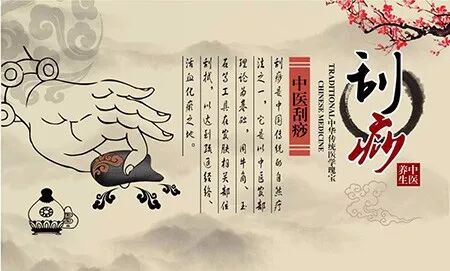 刮痧
TRADITIONAL中华传统医学瑰宝
CHINESE MEDICINE
中医
养生
中医刮痧
刮痧是中国传统的自然疗
法之一，它是以中医皮部
理论为基础，用牛角、玉
石等工具在皮肤相关部位
刮拭，以达到疏通经络、
活血化瘀之地。